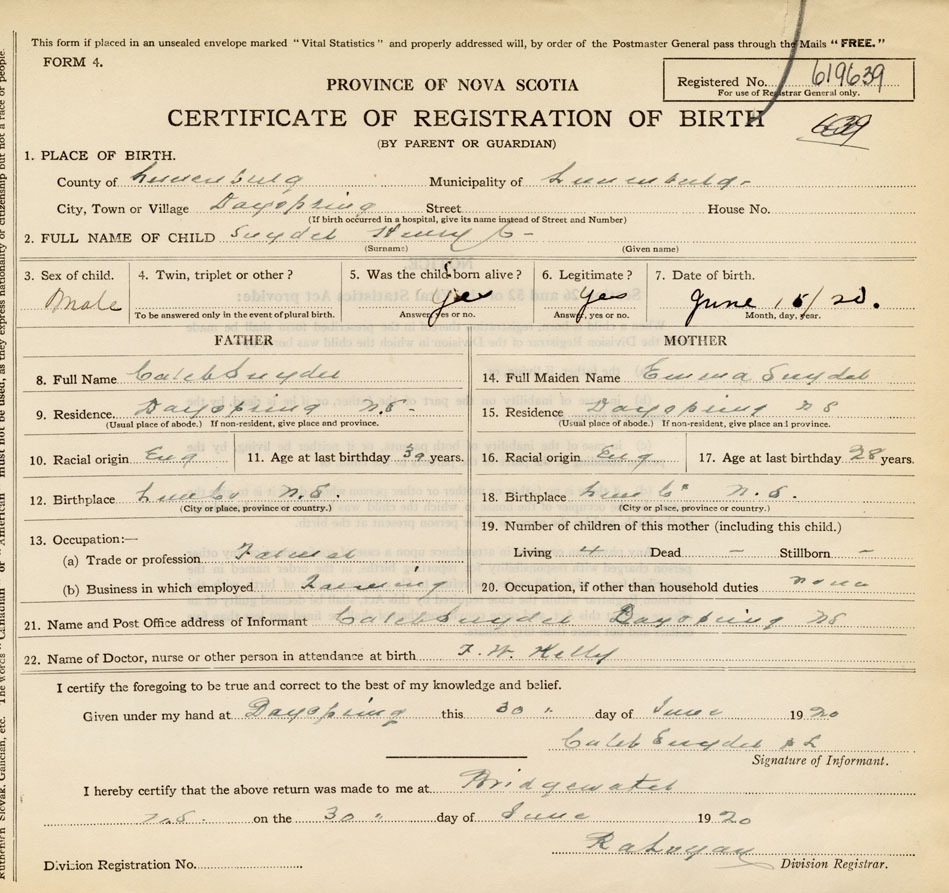 This form if placed in an unsealed envelope marked "Vital Statistics" and properly addressed will, by order of the Postmaster General pass through the Mails "FREE."
FORM 4.
Registered No. 619639
For use of Registrar General only.
PROVINCE OF NOVA SCOTIA
CERTIFICATE OF REGISTRATION OF BIRTH
639
(BY PARENT OR GUARDIAN)
1. PLACE OF BIRTH.
County of Lunenburg Municipality of Lunenburg
City, Town or Village Dayspring Street House No.
(If birth occurred in a hospital, give its name instead of Street and Number)
2. FULL NAME OF CHILD Snyder Henry C
(Surname) (Given name)
3. Sex of child. 4. Twin, triplet or other? 5. Was the child born alive? 6. Legitimate? 7. Date of birth.
Male Yes Yes June 15/20.
To be answered only in the event of plural birth. Answer, yes or no. Answer, yes or no. Month, day, year.
FATHER MOTHER
8. Full Name Caleb Snyder 14. Full Maiden Name Emma Snyder
9. Residence. Dayspring N.S. 15. Residence Dayspring N S
(Usual place of abode.) If non-resident, give place and province. (Usual place of abode.) If non-resident, give place and province.
10. Racial origin Eng 11. Age at last birthday years. 16. Racial origin Eng 17. Age at last birthday 28 years.
12. Birthplace Lun Co N.S. 18. Birthplace Lun Co N.S.
(City or place, province or country.) (City or place, province or country.)
19. Number of children of this mother (including this child.)
13. Occupation:—
(a) Trade or profession Farmer Living 4 Dead – Stillborn –
(b) Business in which employed Farming 20. Occupation, if other than household duties none
21. Name and Post Office address of Informant Caleb Snyder Dayspring NS
22. Name of Doctor, nurse or other person in attendance at birth F. W. Kelly
I certify the foregoing to be true and correct to the best of my knowledge and belief.
Given under my hand at Dayspring this 30 " day of June 1920
Caleb Snyder
Signature of Informant.
I hereby certify that the above return was made to me at Bridgewater
N.S. on the 30 " day of June 1920
Division Registration No. Division Registrar.